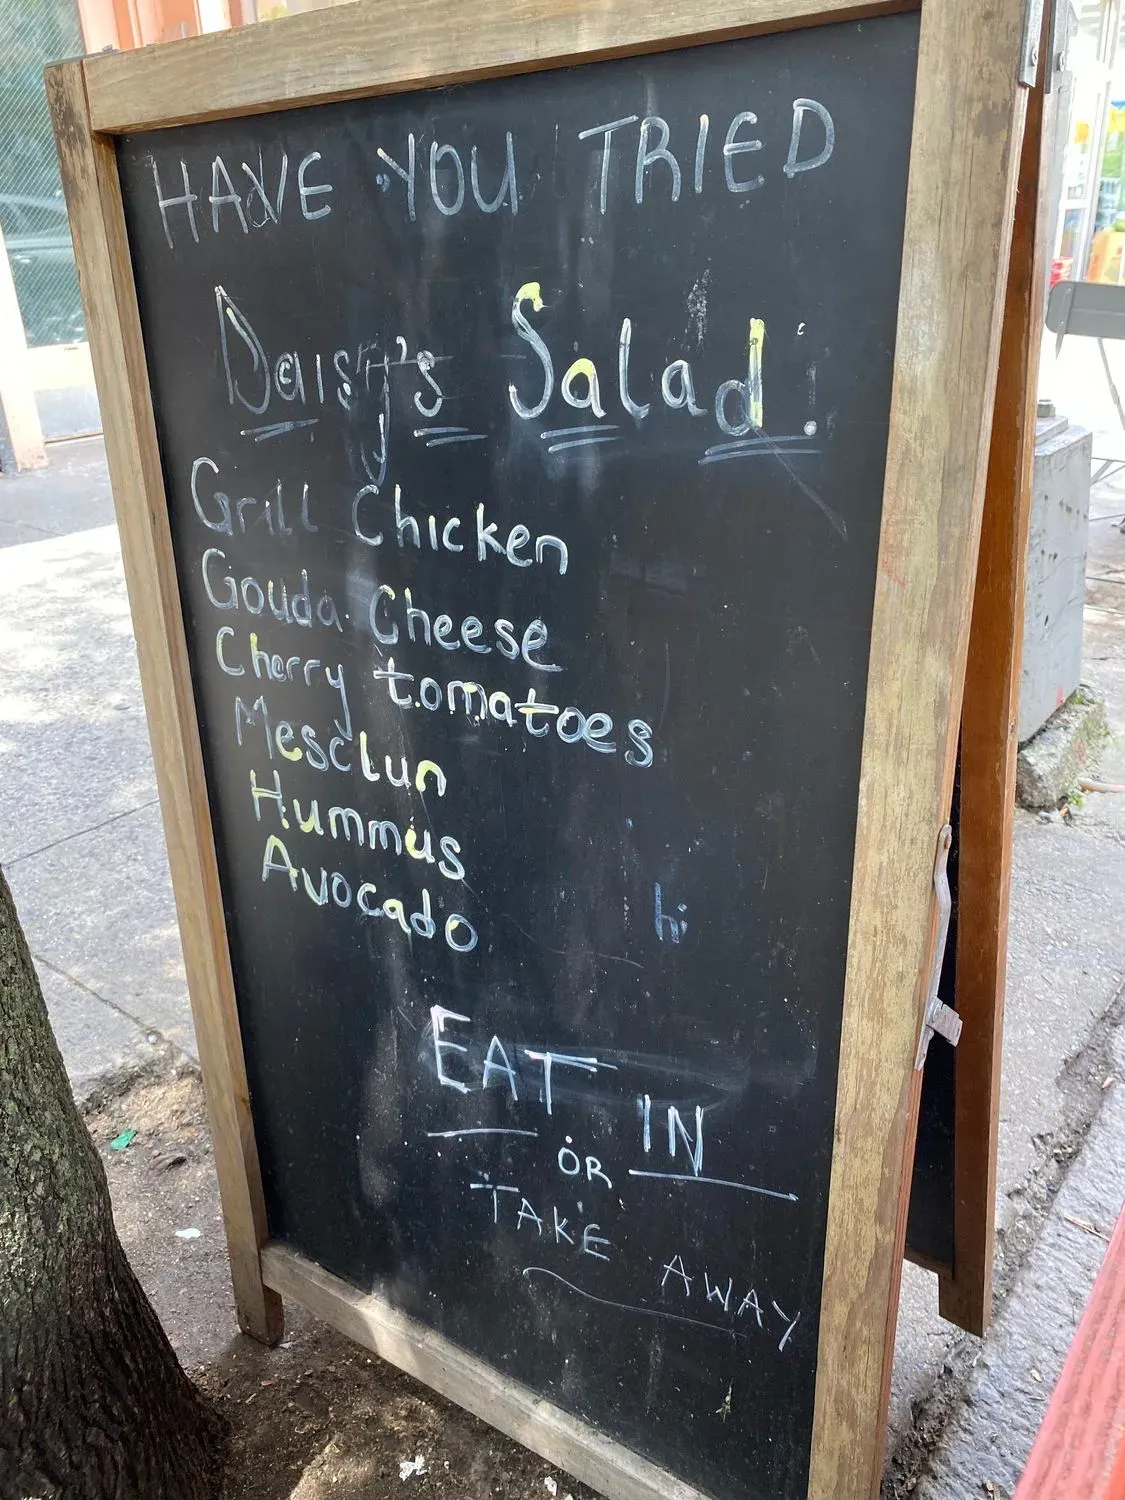 HAVE YOU TRIED
Daisy's Salad!
Grill Chicken
Gouda Cheese
Cherry tomatoes
Mesclun
Hummus
Avocado
hi
EAT IN
OR
TAKE AWAY